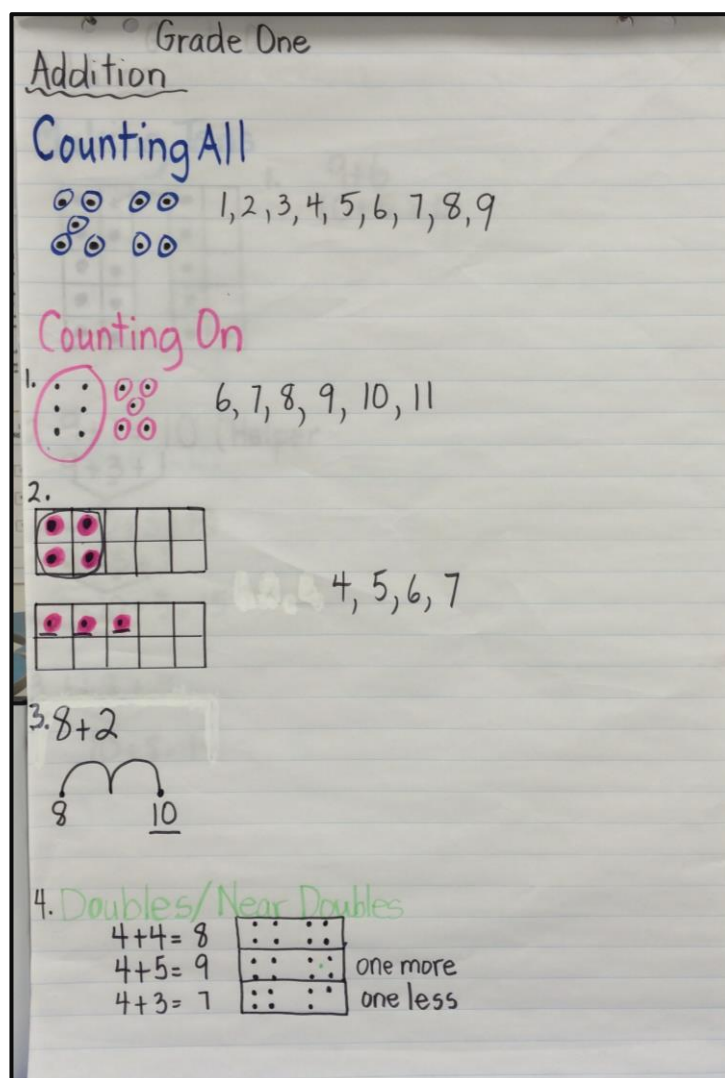 Grade One
Addition
Counting All
1, 2, 3, 4, 5, 6, 7, 8, 9
Counting On
1.
6, 7, 8, 9, 10, 11
2.
4, 5, 6, 7
3. 8+2
8 10
4. Doubles/Near Doubles
4+4= 8
4+5= 9 one more
4+3= 7 one less